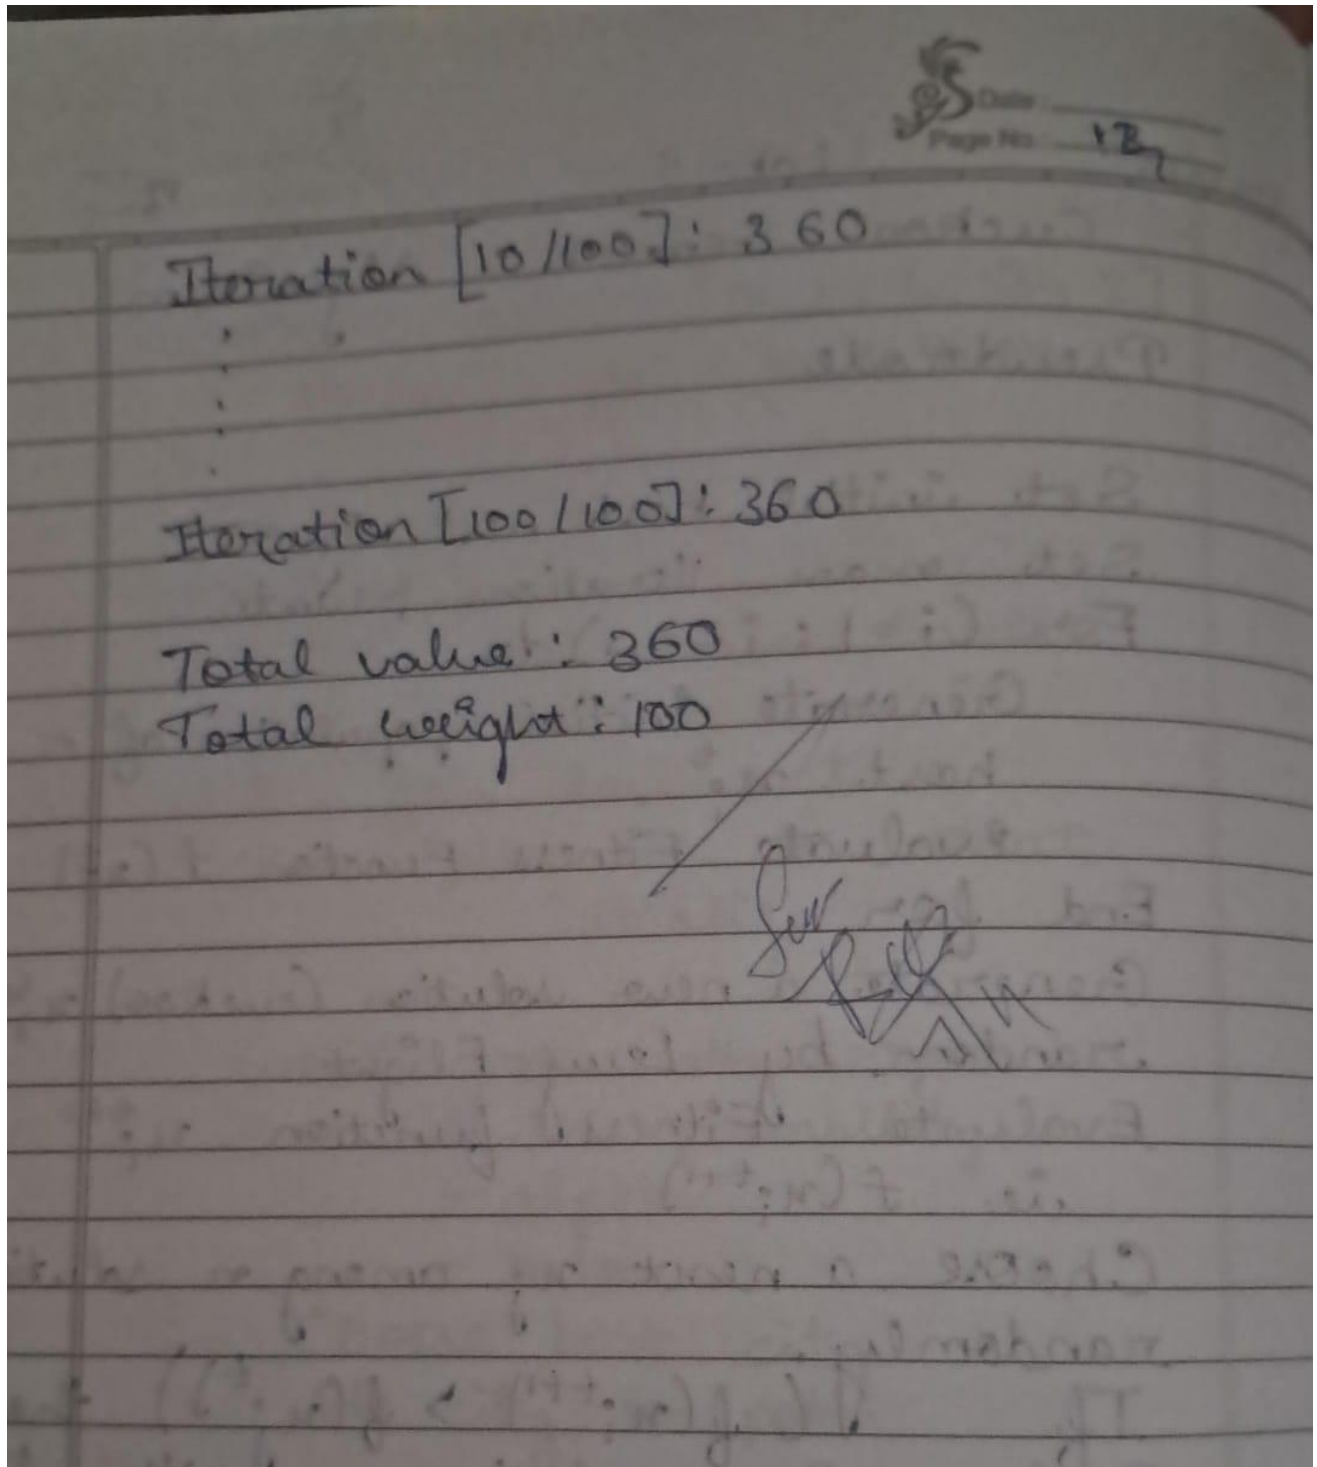 Date
Page No
Iteration [10/100]: 360
Iteration [100/100]: 360
Total value: 360
Total weight: 100